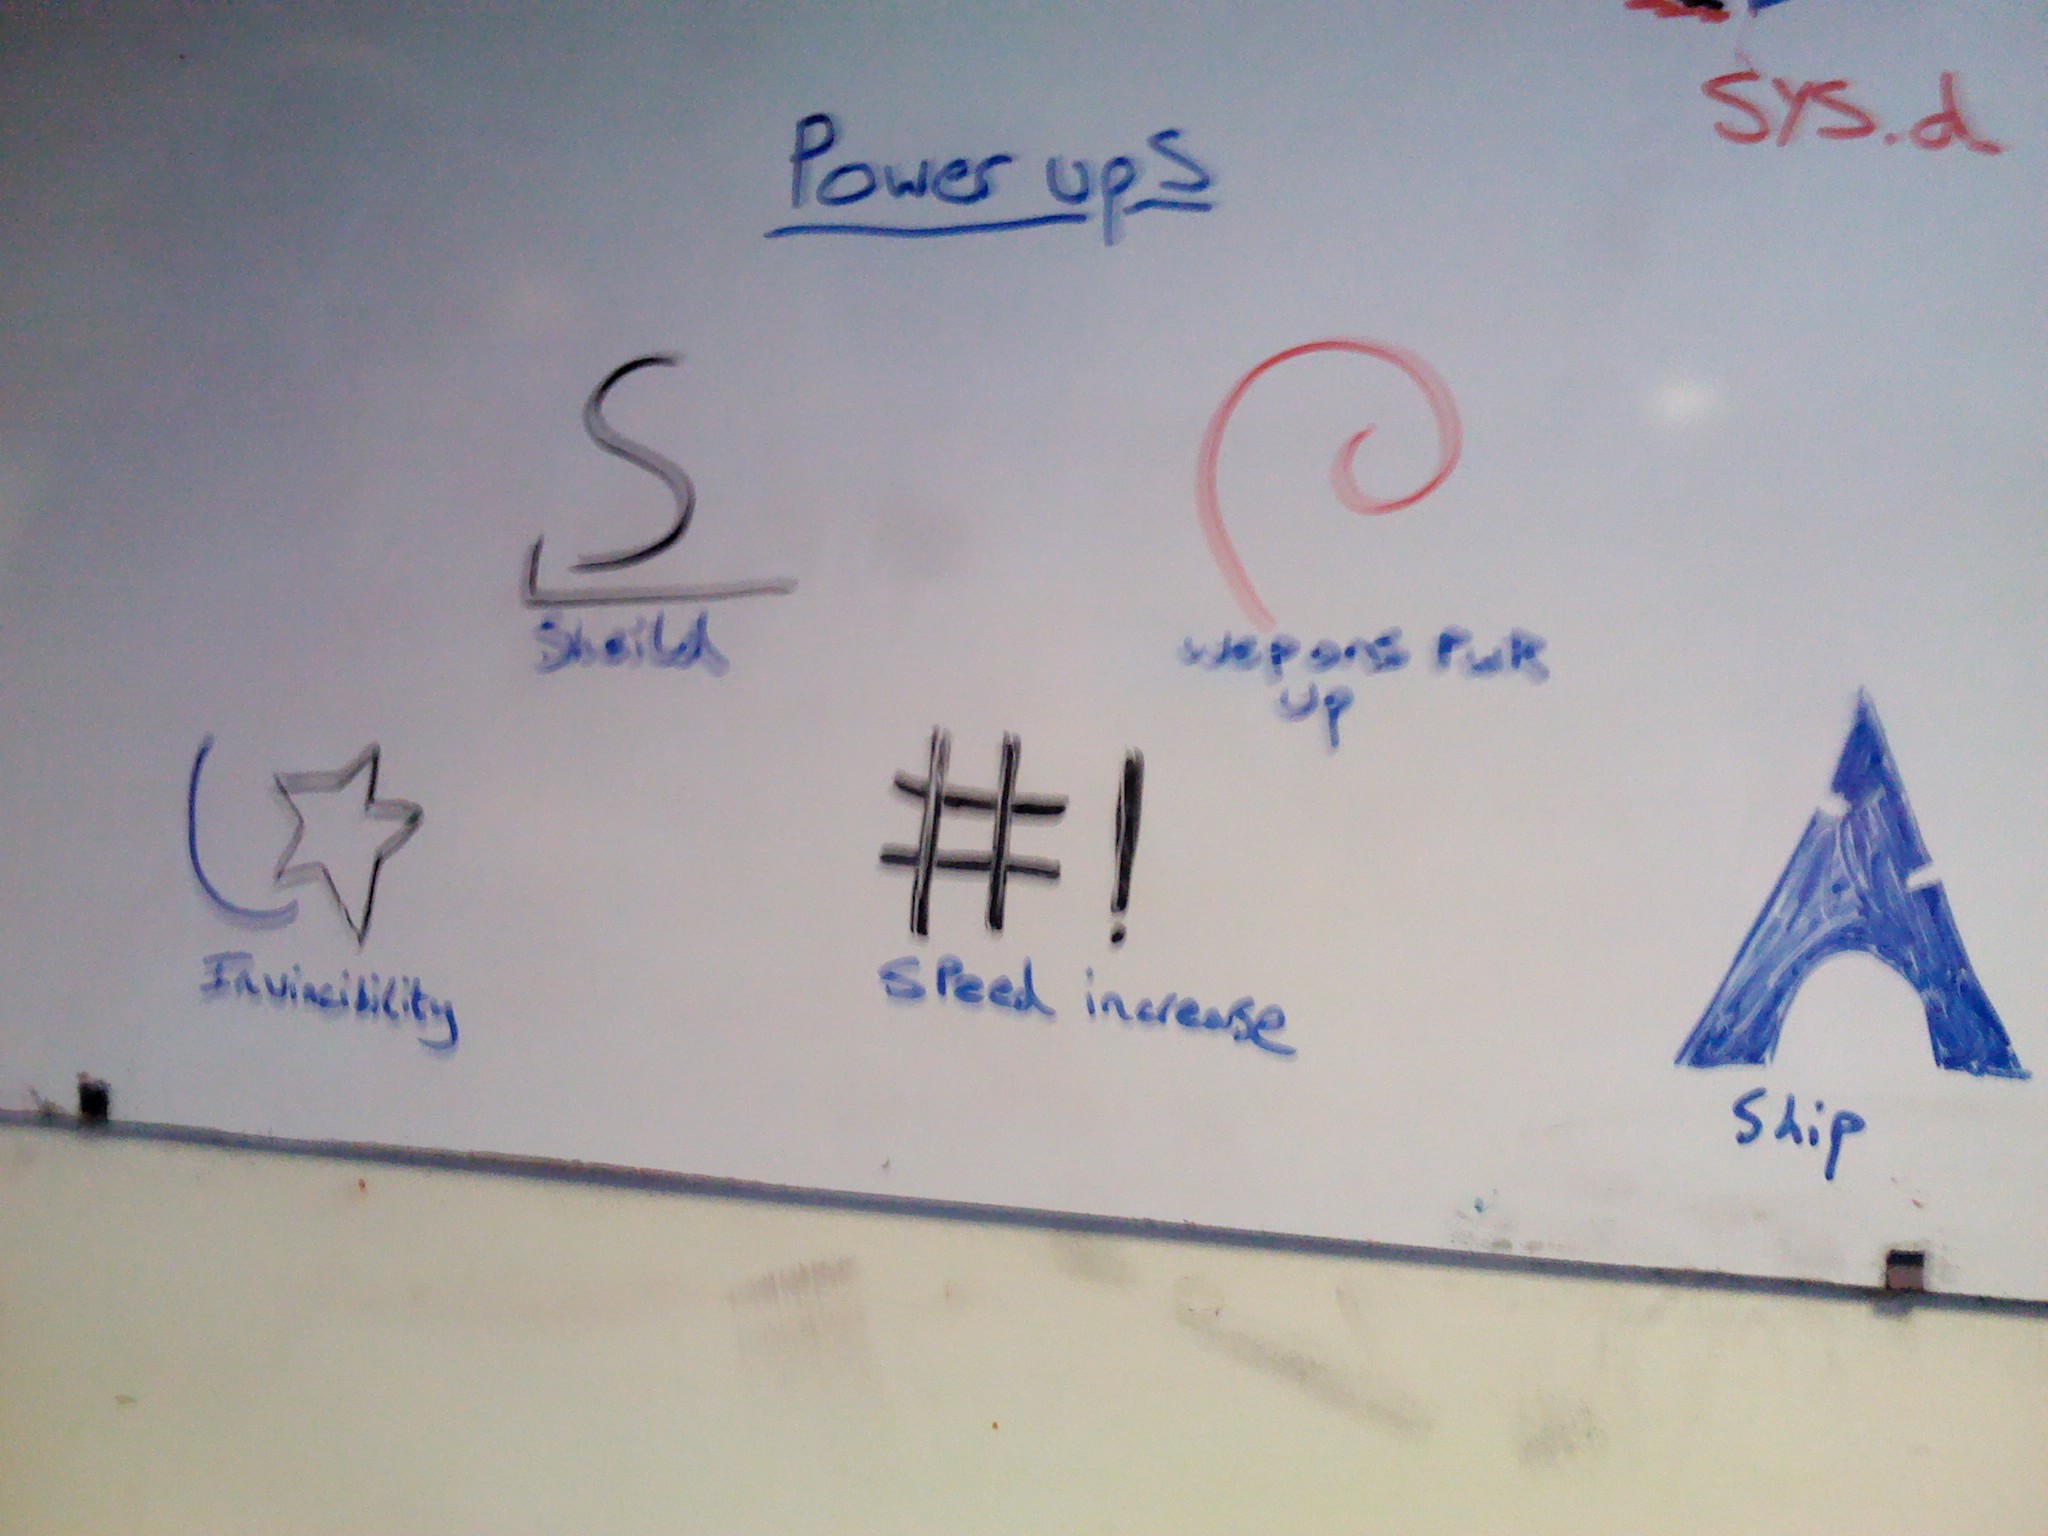 SYS.d
Power ups
S
Sheild
Wepons
Up
Invincibility
#!
Speed increase
Ship